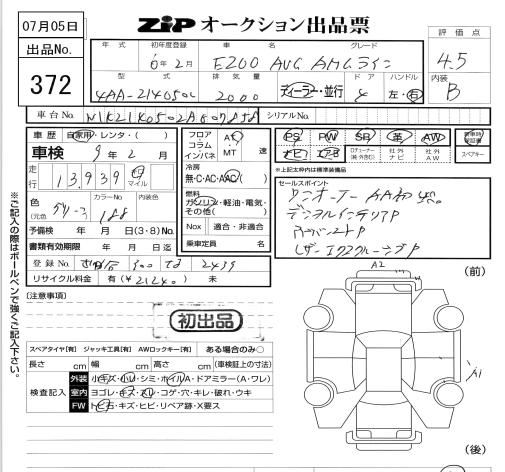 07月05日
ZIP オークション出品票
出品No.
372
年式 初年度登録 車名 グレード
6年2月 E200 AVG AMGライン
評価点
4.5
型式 排気量 ドア ハンドル
4AA-214050C 2000 ディーラー・並行 4 左・右
内装
B
車台No. シリアルNo.
車歴 自家用・レンタ・( )
車検 9年2月
走行 13,939 km マイル
色 (元色) カラーNo. 内装色
グリーン 188
予備検 年 月 日(3・8)No.
書類有効期限 年 月 日迄
登録No. 300 2439
リサイクル料金 有(¥21240) 未
フロア コラム インパネ AT MT 速
冷房
無・C・AC・AAC( )
燃料
ガソリン・軽油・電気・その他( )
Nox 適合・非適合
乗車定員 名
PS PW SR 革 AW
ナビ エアB TVチューナー(純・外含む) 社外ナビ 社外AW
新車時保証書
スペアキー
※上記太枠内は標準装備品
セールスポイント
ワンオーナー AA初出品
デジタルインテリアP
アドバンストP
レザーエクスクルーシブP
※ご記入の際はボールペンで強くご記入下さい。
[注意事項]
初出品
A2
(前)
A1
(後)
スペアタイヤ[有] ジャッキ工具[有] AWロックキー[有] ある場合のみ○
長さ cm 幅 cm 高さ cm (車検証上の寸法)
検査記入
外装 小キズ・小U・シミ・ホイルA・ドアミラー(A・ワレ)
室内 ヨゴレ・キズ・スレ・コゲ・穴・キレ・破れ・ウキ
FW トビ石・キズ・ヒビ・リペア跡・X要ス